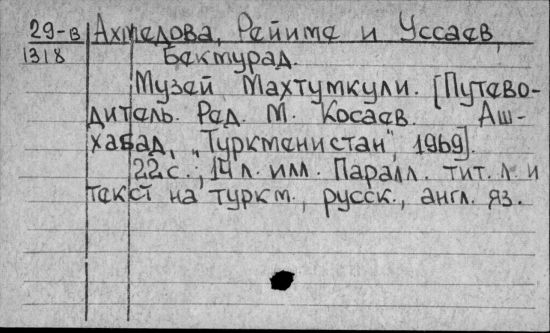 29-в Ахмедова, Рейима и Уссаев
1318 Бектурад.
Музей Махтумкули. [Путево-
дитель. Ред. М. Косаев. Аш-
хабад, „Туркменистан", 1969].
22 с., 14 л. илл. Паралл. тит. л. и
текст на туркм., русск., англ. яз.